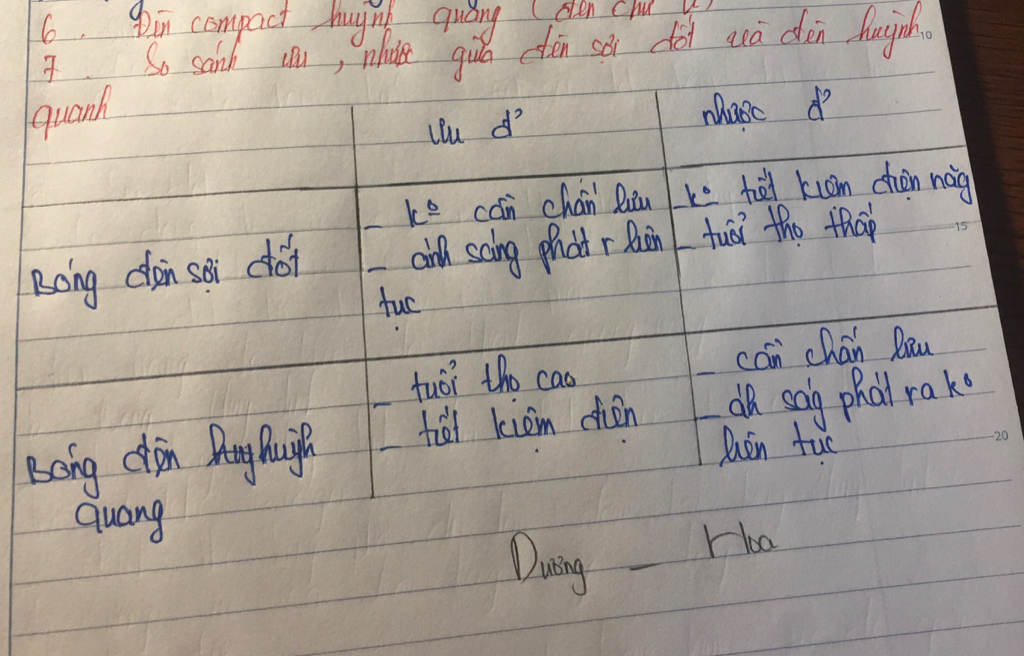 6. Đèn compact huỳnh quang (đèn chữ U)
7. So sánh ưu, nhược giữa đèn sợi đốt và đèn huỳnh
quanh
10
ưu đ'
nhược đ'
Bóng đện sợi đốt
- kº cần chấn lưu
- ánh sáng phát r liên
tục
- kº tiết kiệm điện năg
- tuổi thọ thấp
15
Bóng đện huỳnh
quang
- tuổi thọ cao
- tiết kiệm điện
- cần chấn lưu
- áh ság phát ra kº
liên tục
20
Dương - Hoa